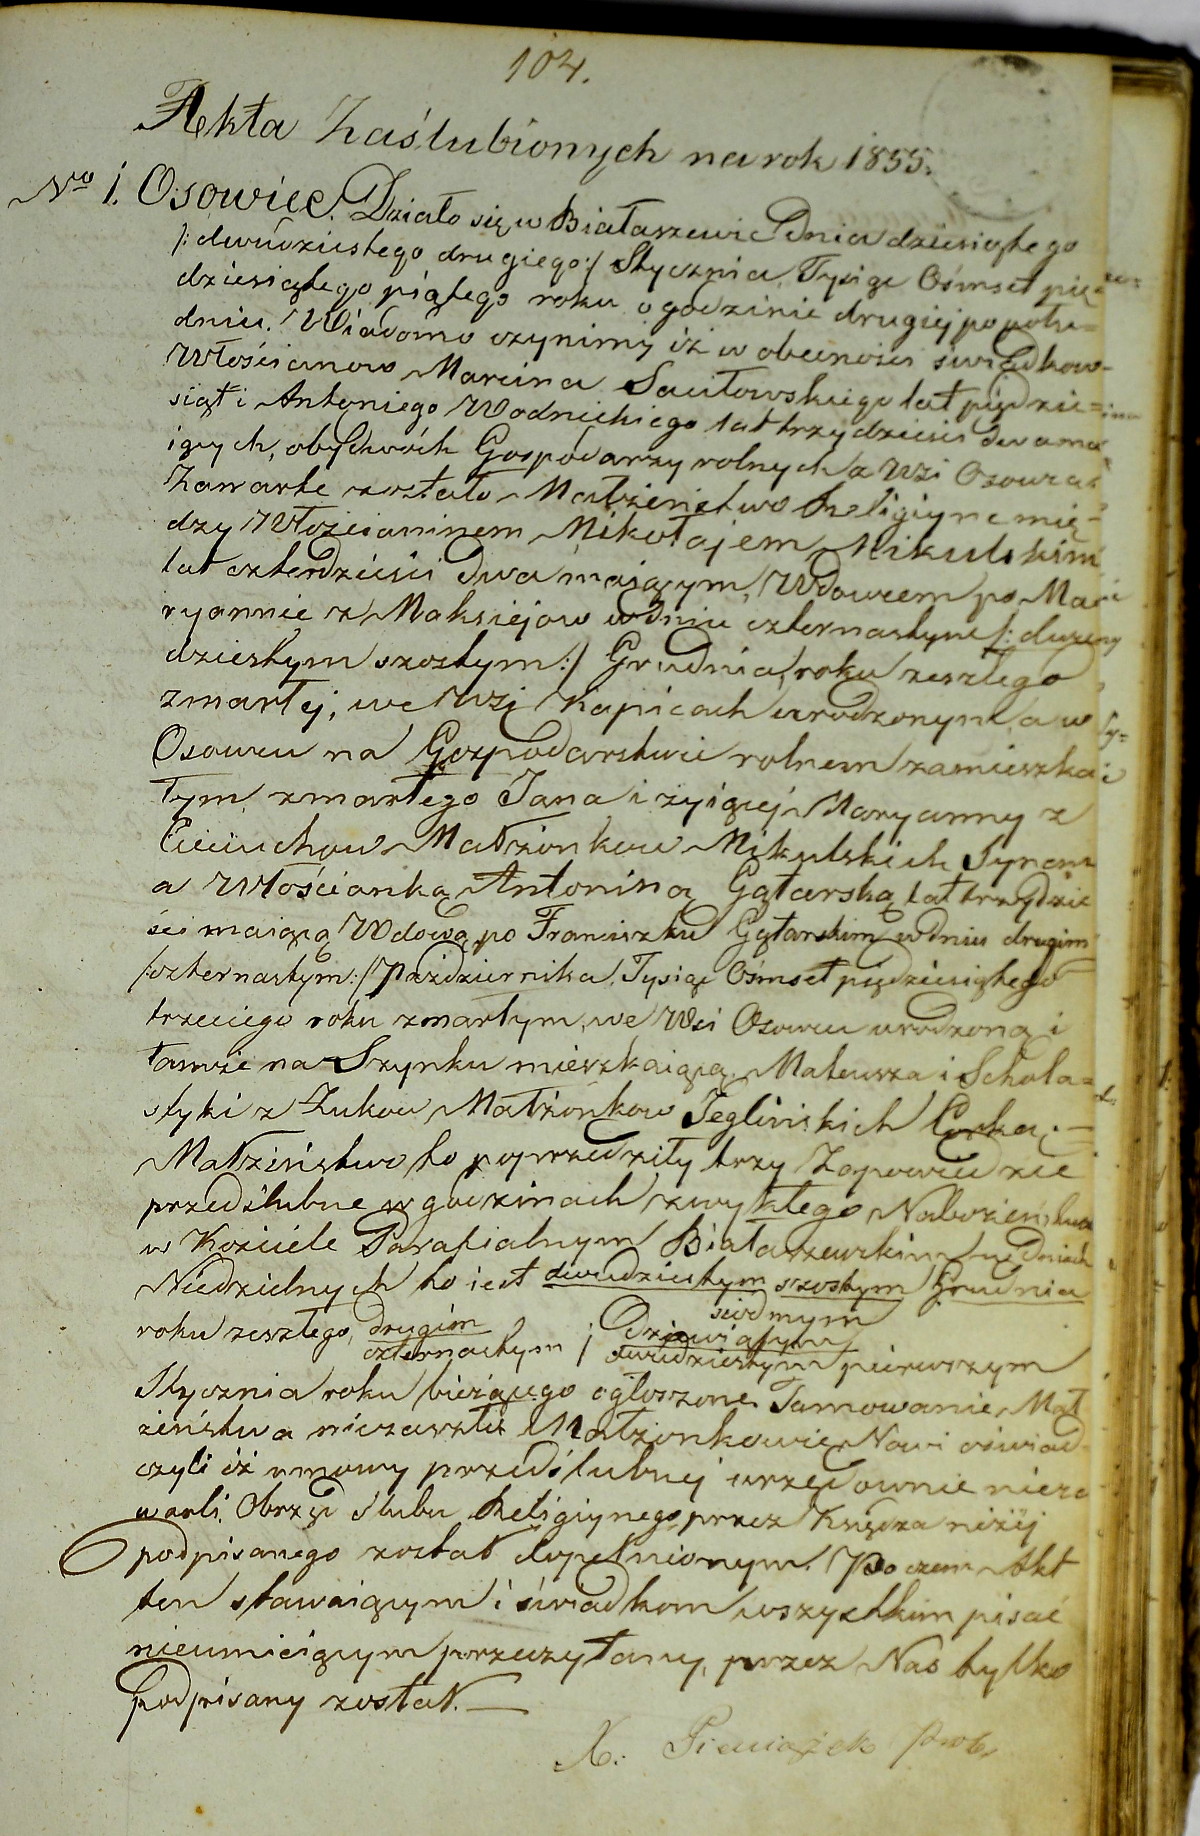 104.
Akta Zaślubionych na rok 1855.
No 1. Osowiec. Działo się w Białaszewie Dnia dziesiątego
/: dwudziestego drugiego :/ Stycznia, Tysiąc Ośmset pię=
dziesiątego piątego roku o godzinie drugiej po połu=
dniu. Wiadomo czynimy iż w obecności świadkow
Włościanow Marcina Saciłowskiego lat pięździe=
siąt i Antoniego Wodnickiego lat trzydzieści dwa ma=
iących, obydwóch Gospodarzy rolnych z Wsi Osowca
Zawarte zostało Małżeństwo Religiyne mię=
dzy Włościaninem Mikołajem Mikulskim
lat czterdzieści dwa maiącym, Wdowcem po Ma=
ryannie z Maksiejow w dniu czternastym /: dwu
dziestym szóstym :/ Grudnia, roku zeszłego
zmarłej, we Wsi Kapicach urodzonym, a w
Osowcu na Gospodarstwie rolnem zamieszka=
łym, zmarłego Jana i żyiącej Maryanny z
Cieciuchow Małżonkow Mikulskich Synem
a Włościanką Antoniną Gątarską lat trzydzie
ści maiącą Wdową po Franciszku Gątarskim w dniu drugim
/: czternastym :/ Października, Tysiąc Ośmset pięździesiątego
trzeciego roku zmarłym, we Wsi Osowcu urodzoną i
tamże na Szynku mieszkaiącą, Mateusza i Schola=
styki z Żukow Małżonkow Jeglińskich Corką. —
Małżeństwo to poprzedziły trzy Zapowiedzie
przedślubne w godzinach zwykłego Nabożeństwa
w Kościele Parafialnym Białaszewskim w Dniach
Niedzielnych to iest dwudziestym szostym Grudnia
siódmym
roku zeszłego, drugim / czternastym i Dziewiątym / dwudziestym pierwszym
Stycznia roku bieżącego ogłoszone. Tamowanie Mał
żeństwa niezaszło. Małżonkowie Nowi oświad
czyli iż umowy przedślubnej urzędownie nieza
warli. Obrzęd Ślubu Religiynego przez Księdza niżej
podpisanego został dopełnionym. Po czem Akt
ten stawaiącym i świadkom wszystkim pisać
nieumieiącym przeczytany, przez Nas tylko
podpisany został. —
X. Pieniążek Prob.